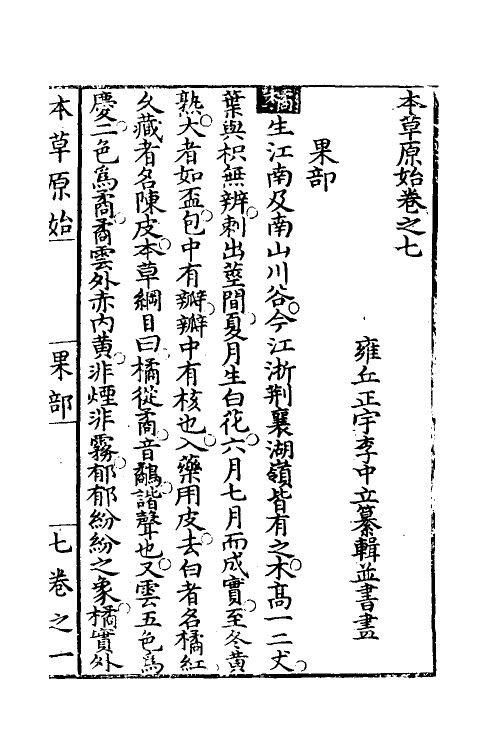 本草原始卷之七
雍丘正宇李中立纂輯並書畫
果部
橘
生江南及南山川谷今江浙荆襄湖嶺皆有之木髙一二丈
葉與枳無辨刺出莖間夏月生白花六月七月而成實至冬黄
熟大者如盃包中有瓣瓣中有核也入藥用皮去白者名橘紅
久藏者名陳皮本草綱目曰橘從矞音鷸諧聲也又雲五色爲
慶二色爲矞矞雲外赤内黄非煙非霧郁郁紛紛之象橘實外
本草原始
果部
七卷之一